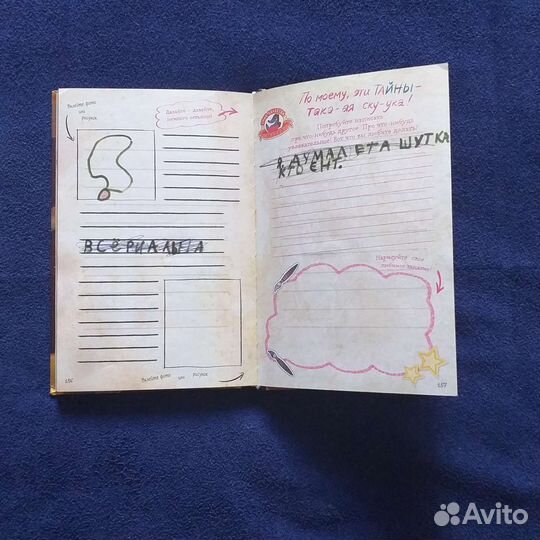 Вклейте фото
или
рисунок
Давайте - давайте,
немного осталось!
ВСЁ РИАЛЬГА
Вклейте фото или рисунок
256
По моему, эти ТАЙНЫ-
така-ая ску-ука!
Попробуйте написать
про что-нибудь другое. Про что-нибудь
увлекательное! Вот что вы любите делать?
Я ДУМАЛ ЕТА ШУТКА
КТО ЕНТ.
Нарисуйте свое
любимое занятие!
257
Avito